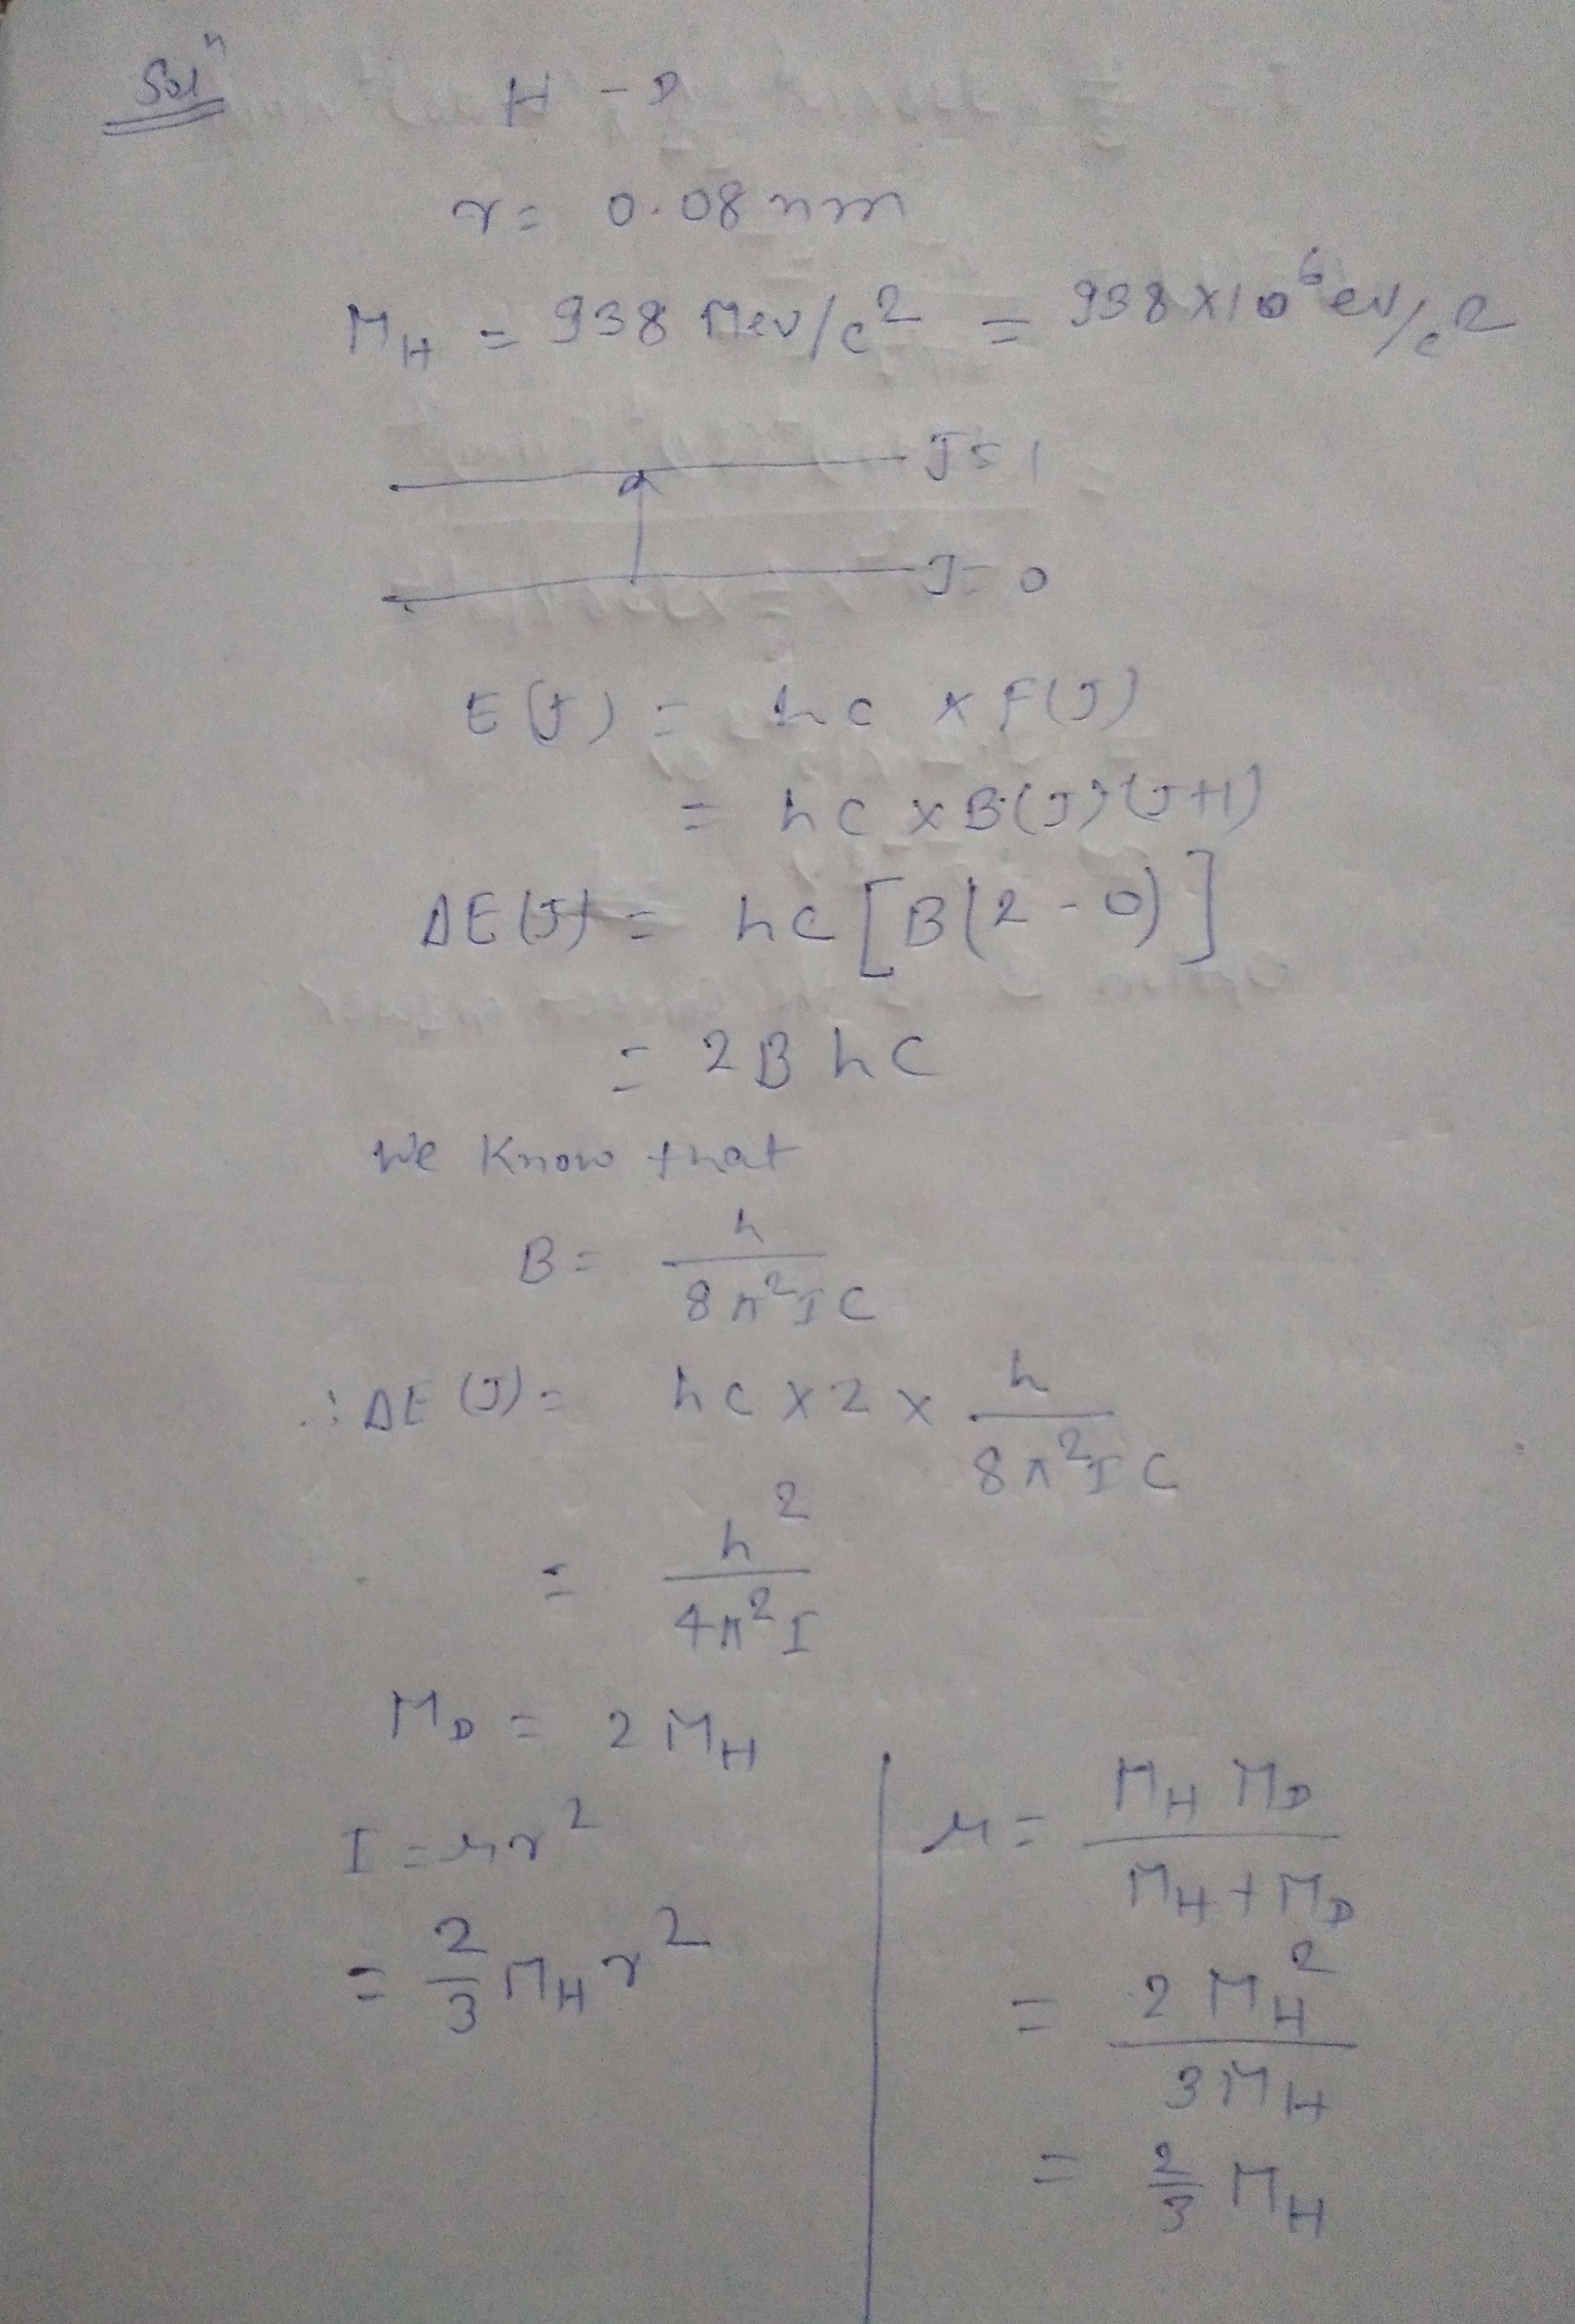 Solⁿ
H - D
r = 0.08 nm
M_H = 938 Mev/c² = 938 × 10⁶ ev/c²
J = 1
J = 0
E(J) = hc × F(J)
= hc × B(J)(J+1)
ΔE(J) = hc [B(2-0)]
= 2Bhc
We know that
B = h / 8π²Ic
∴ ΔE(J) = hc × 2 × h / 8π²Ic
= h² / 4π²I
M_D = 2 M_H
I = μr²
= 2/3 M_H r²
μ = M_H M_D / M_H + M_D
= 2 M_H² / 3 M_H
= 2/3 M_H